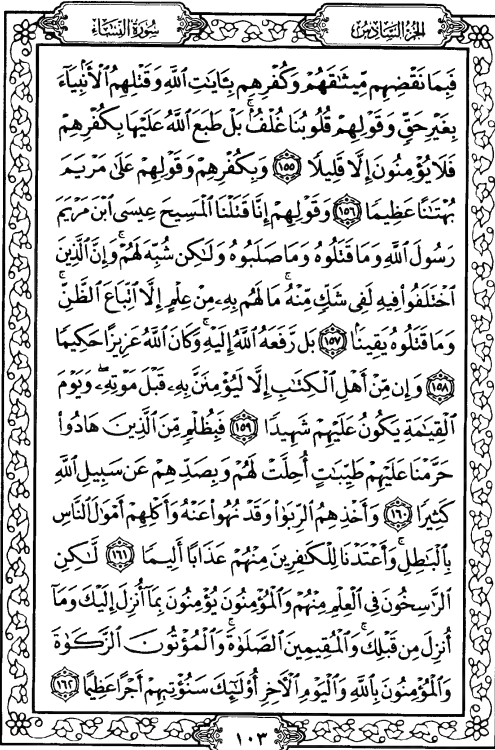 الجزء السادس سورة النساء
فَبِمَا نَقْضِهِم مِّيثَٰقَهُمْ وَكُفْرِهِم بِـَٔايَٰتِ ٱللَّهِ وَقَتْلِهِمُ ٱلْأَنۢبِيَآءَ
بِغَيْرِ حَقٍّ وَقَوْلِهِمْ قُلُوبُنَا غُلْفٌۢ ۚ بَلْ طَبَعَ ٱللَّهُ عَلَيْهَا بِكُفْرِهِمْ
فَلَا يُؤْمِنُونَ إِلَّا قَلِيلًا ١٥٥ وَبِكُفْرِهِمْ وَقَوْلِهِمْ عَلَىٰ مَرْيَمَ
بُهْتَٰنًا عَظِيمًا ١٥٦ وَقَوْلِهِمْ إِنَّا قَتَلْنَا ٱلْمَسِيحَ عِيسَى ٱبْنَ مَرْيَمَ
رَسُولَ ٱللَّهِ وَمَا قَتَلُوهُ وَمَا صَلَبُوهُ وَلَٰكِن شُبِّهَ لَهُمْ ۚ وَإِنَّ ٱلَّذِينَ
ٱخْتَلَفُوا۟ فِيهِ لَفِى شَكٍّ مِّنْهُ ۚ مَا لَهُم بِهِۦ مِنْ عِلْمٍ إِلَّا ٱتِّبَاعَ ٱلظَّنِّ ۚ
وَمَا قَتَلُوهُ يَقِينًۢا ١٥٧ بَل رَّفَعَهُ ٱللَّهُ إِلَيْهِ ۚ وَكَانَ ٱللَّهُ عَزِيزًا حَكِيمًا
١٥٨ وَإِن مِّنْ أَهْلِ ٱلْكِتَٰبِ إِلَّا لَيُؤْمِنَنَّ بِهِۦ قَبْلَ مَوْتِهِۦ ۖ وَيَوْمَ
ٱلْقِيَٰمَةِ يَكُونُ عَلَيْهِمْ شَهِيدًا ١٥٩ فَبِظُلْمٍ مِّنَ ٱلَّذِينَ هَادُوا۟
حَرَّمْنَا عَلَيْهِمْ طَيِّبَٰتٍ أُحِلَّتْ لَهُمْ وَبِصَدِّهِمْ عَن سَبِيلِ ٱللَّهِ
كَثِيرًا ١٦٠ وَأَخْذِهِمُ ٱلرِّبَوٰا۟ وَقَدْ نُهُوا۟ عَنْهُ وَأَكْلِهِمْ أَمْوَٰلَ ٱلنَّاسِ
بِٱلْبَٰطِلِ ۚ وَأَعْتَدْنَا لِلْكَٰفِرِينَ مِنْهُمْ عَذَابًا أَلِيمًا ١٦١ لَّٰكِنِ
ٱلرَّٰسِخُونَ فِى ٱلْعِلْمِ مِنْهُمْ وَٱلْمُؤْمِنُونَ يُؤْمِنُونَ بِمَآ أُنزِلَ إِلَيْكَ وَمَآ
أُنزِلَ مِن قَبْلِكَ ۚ وَٱلْمُقِيمِينَ ٱلصَّلَوٰةَ ۚ وَٱلْمُؤْتُونَ ٱلزَّكَوٰةَ
وَٱلْمُؤْمِنُونَ بِٱللَّهِ وَٱلْيَوْمِ ٱلْءَاخِرِ أُو۟لَٰٓئِكَ سَنُؤْتِيهِمْ أَجْرًا عَظِيمًا ١٦٢
١٠٣